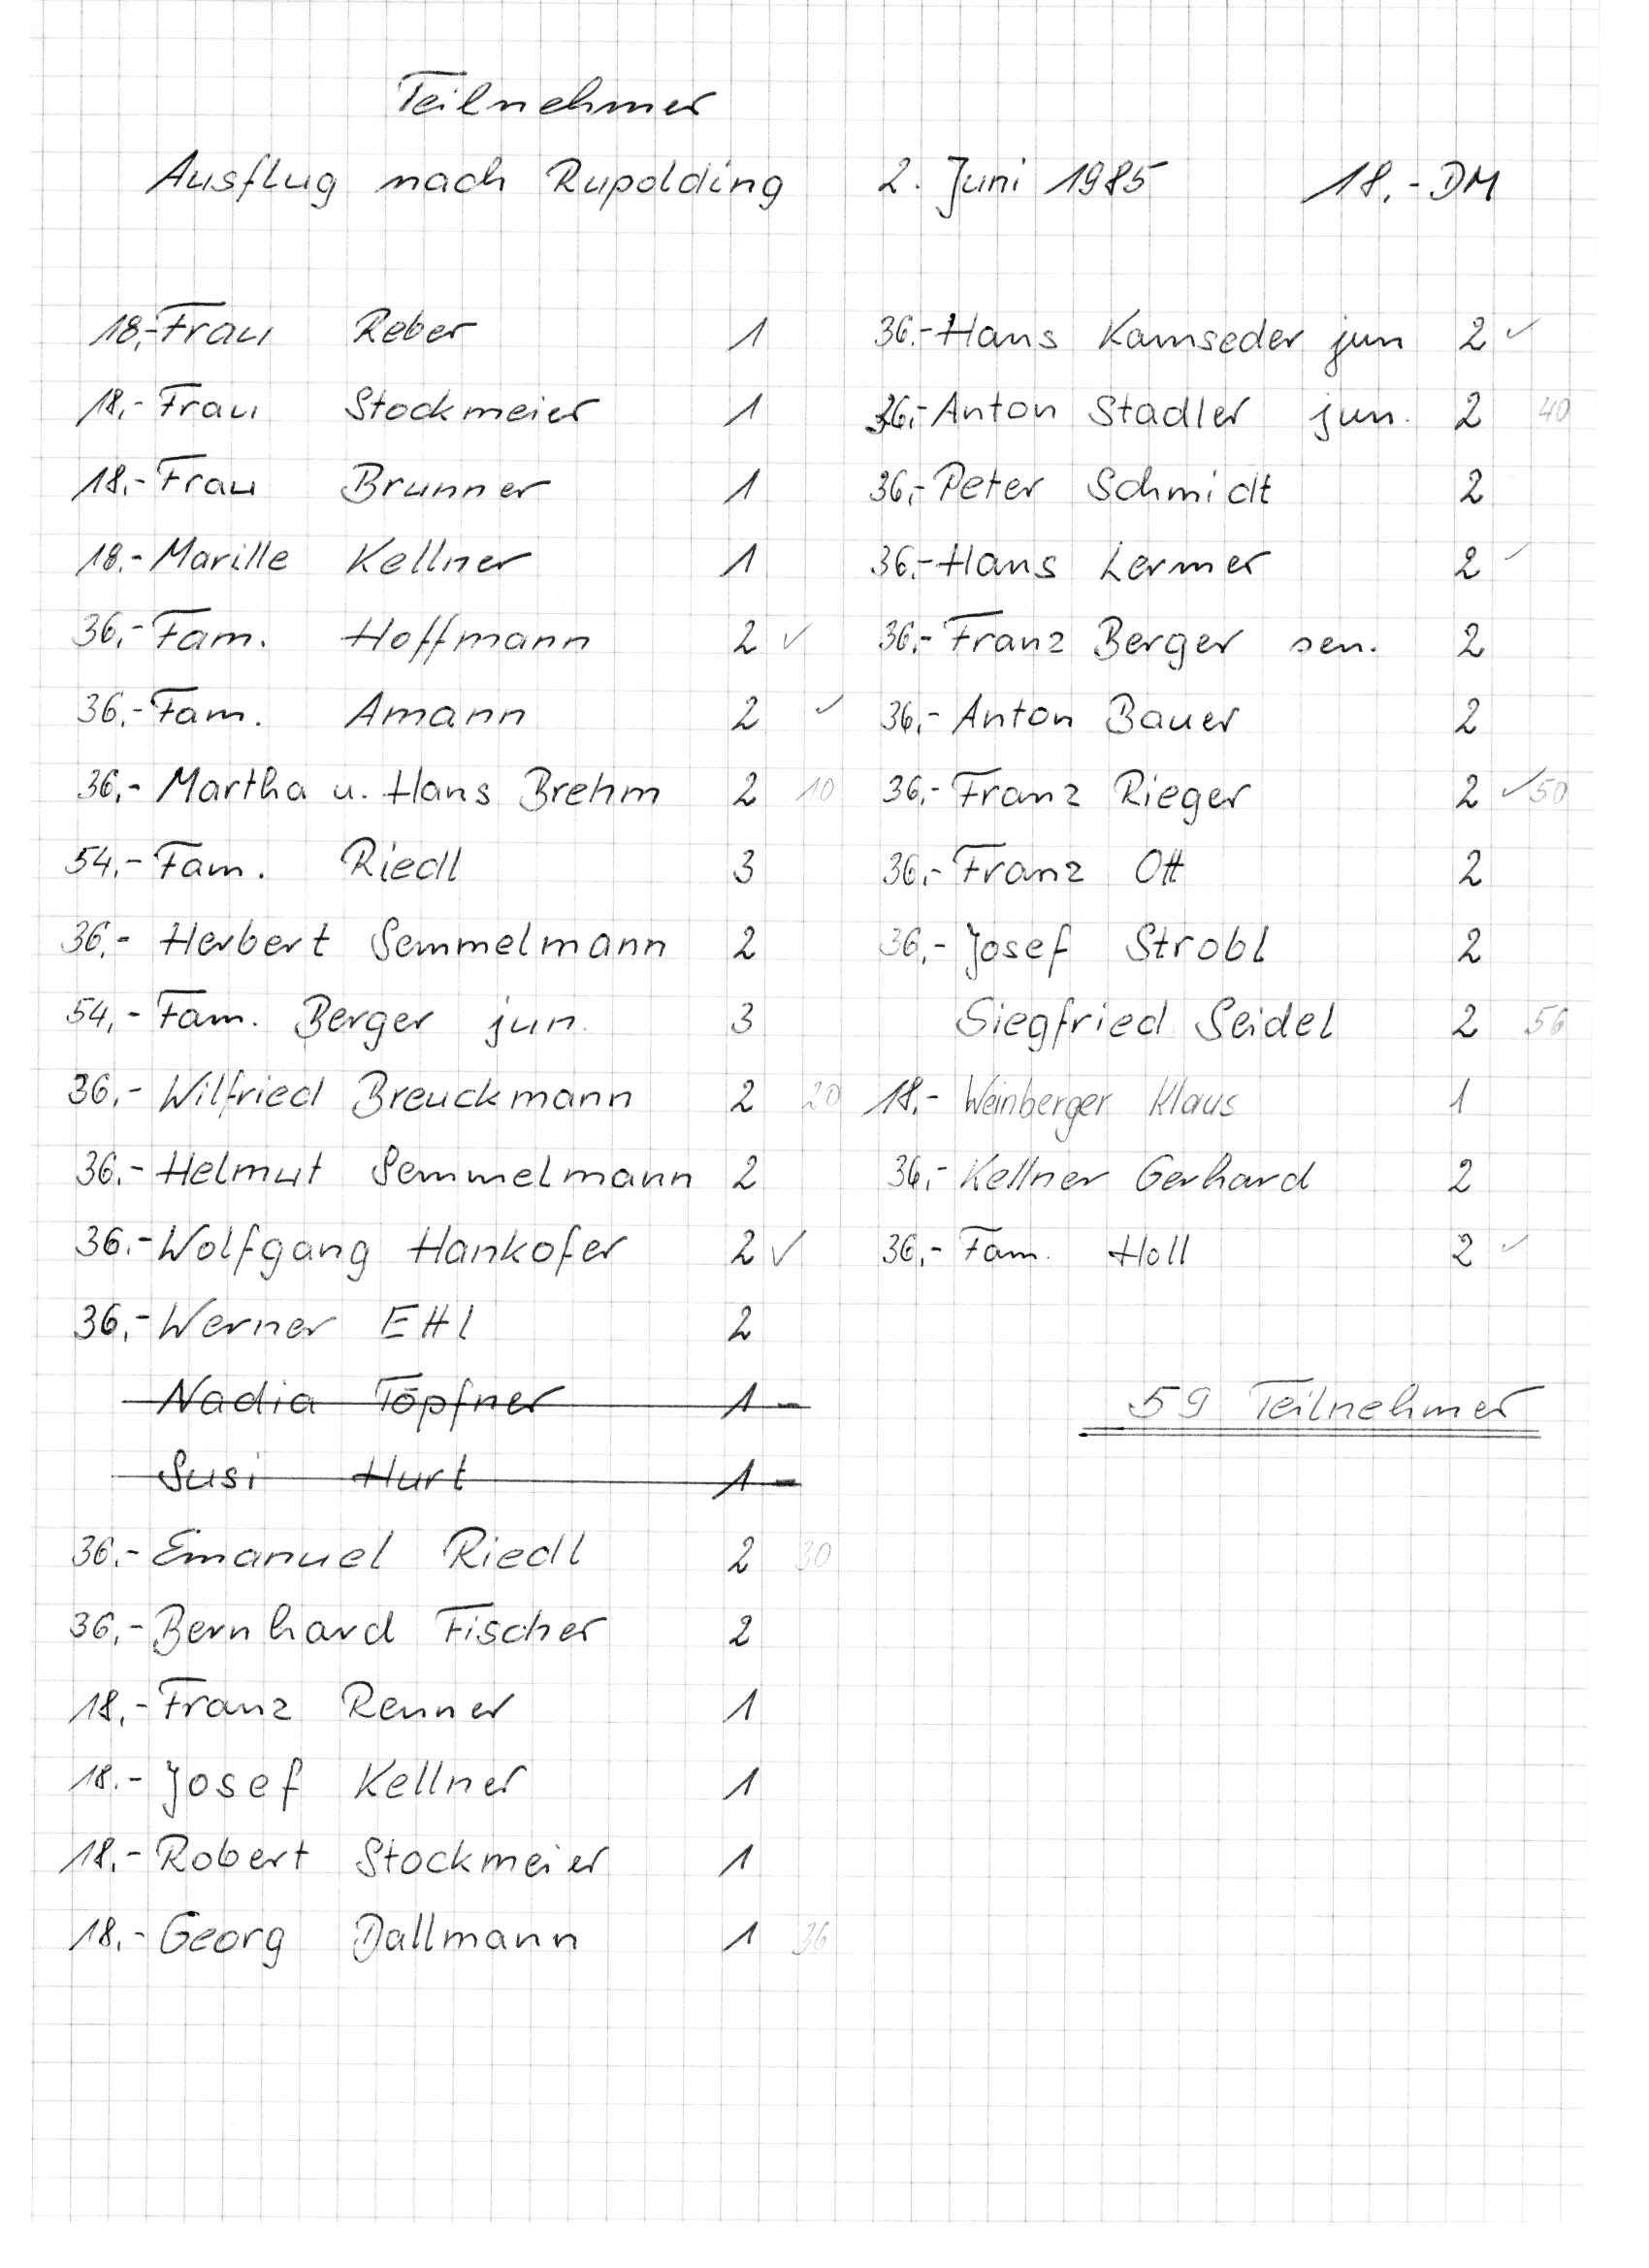 Teilnehmer
Ausflug nach Rupolding 2. Juni 1985 18,- DM
18,- Frau Reber 1
18,- Frau Stockmeier 1
18,- Frau Brunner 1
18,- Marille Kellner 1
36,- Fam. Hoffmann 2 ✓
36,- Fam. Amann 2 ✓
36,- Martha u. Hans Brehm 2 10
54,- Fam. Riedl 3
36,- Herbert Semmelmann 2
54,- Fam. Berger jun. 3
36,- Wilfried Breuckmann 2 20
36,- Helmut Semmelmann 2
36,- Wolfgang Hankofer 2 ✓
36,- Werner Ettl 2
Nadia Töpfner 1 -
Susi Hurt 1 -
36,- Emanuel Riedl 2 30
36,- Bernhard Fischer 2
18,- Franz Renner 1
18,- Josef Kellner 1
18,- Robert Stockmeier 1
18,- Georg Dallmann 1 36
36,- Hans Kamseder jun 2 ✓
36,- Anton Stadler jun. 2 40
36,- Peter Schmidt 2
36,- Hans Lermer 2 ✓
36,- Franz Berger sen. 2
36,- Anton Bauer 2
36,- Franz Rieger 2 ✓ 50
36,- Franz Ott 2
36,- Josef Strobl 2
Siegfried Seidel 2 56
18,- Weinberger Klaus 1
36,- Kellner Gerhard 2
36,- Fam. Holl 2 ✓
59 Teilnehmer